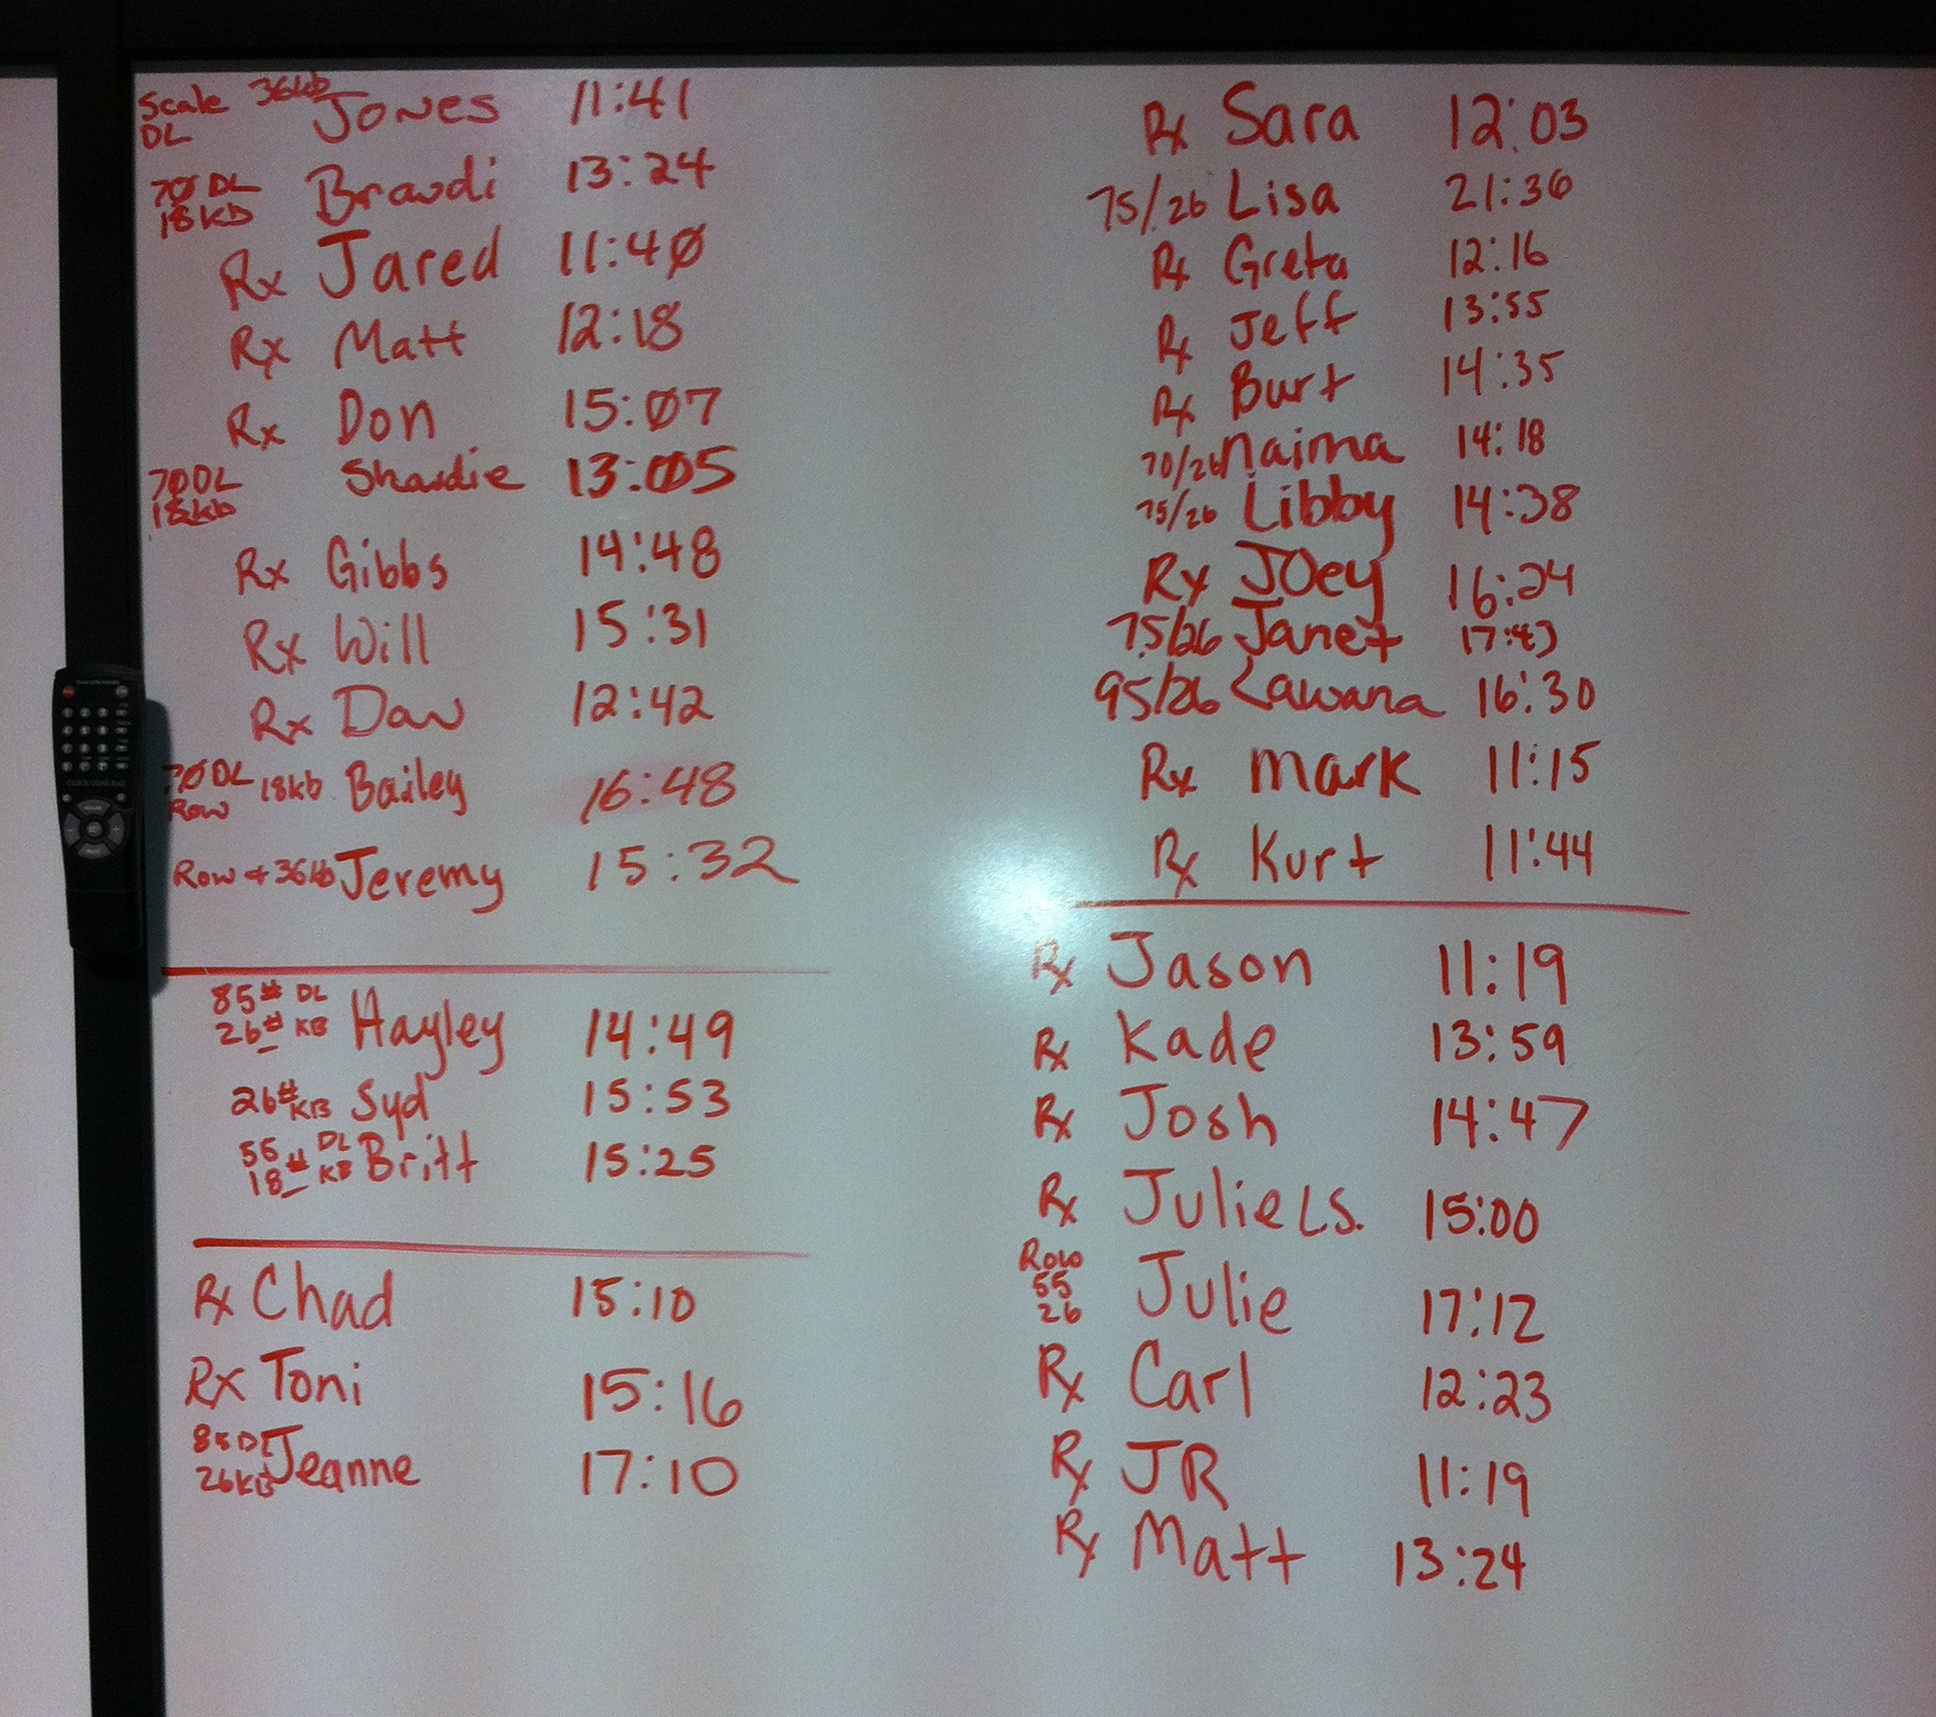 Scale 36kb Jones 11:41
DL
70 DL Brandi 13:24
18kb
Rx Jared 11:40
Rx Matt 12:18
Rx Don 15:07
70DL Shardie 13:05
18kb
Rx Gibbs 14:48
Rx Will 15:31
Rx Dan 12:42
70 DL 18kb Bailey 16:48
Row
Row + 36kb Jeremy 15:32
85# DL Hayley 14:49
26# KB
26# KB Syd 15:53
55 DL Britt 15:25
18# KB
Rx Chad 15:10
Rx Toni 15:16
85 DL Jeanne 17:10
26KB
Rx Sara 12:03
75/26 Lisa 21:36
Rx Greta 12:16
Rx Jeff 13:55
Rx Burt 14:35
70/26 Naima 14:18
75/26 Libby 14:38
Rx Joey 16:24
75/26 Janet
95/26 Lawana 16:30
Rx Mark 11:15
Rx Kurt 11:44
Rx Jason 11:19
Rx Kade 13:59
Rx Josh 14:47
Rx Julie LS. 15:00
Row
55 Julie 17:12
26
Rx Carl 12:23
Rx JR 11:19
Rx Matt 13:24